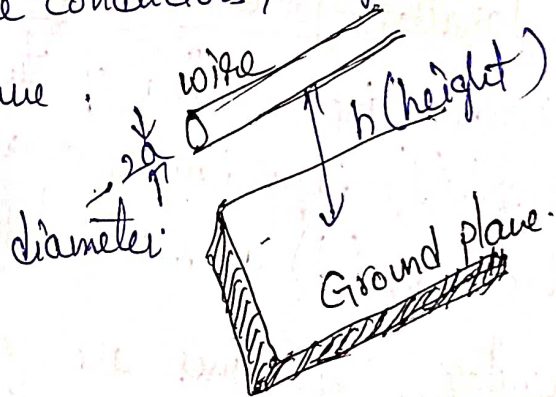 conductors,
wire
h (height)
2a
diameter.
Ground plane.